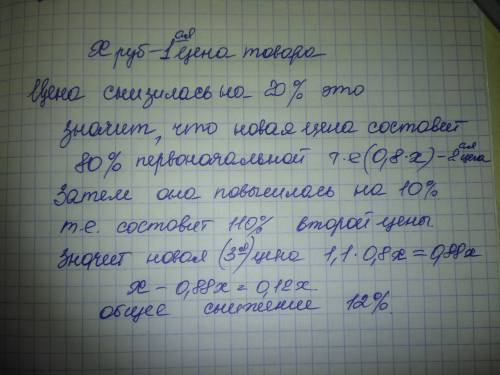 х руб - 1ая цена товара
Цена снизилась на 20% это
значит, что новая цена составит
80% первоначальной т.е (0,8·х) - 2ая цена
Затем она повысилась на 10%
т.е. составит 110% второй цены
Значит новая (3я) цена 1,1·0,8х = 0,88х
х - 0,88х = 0,12х
общее снижение 12%.